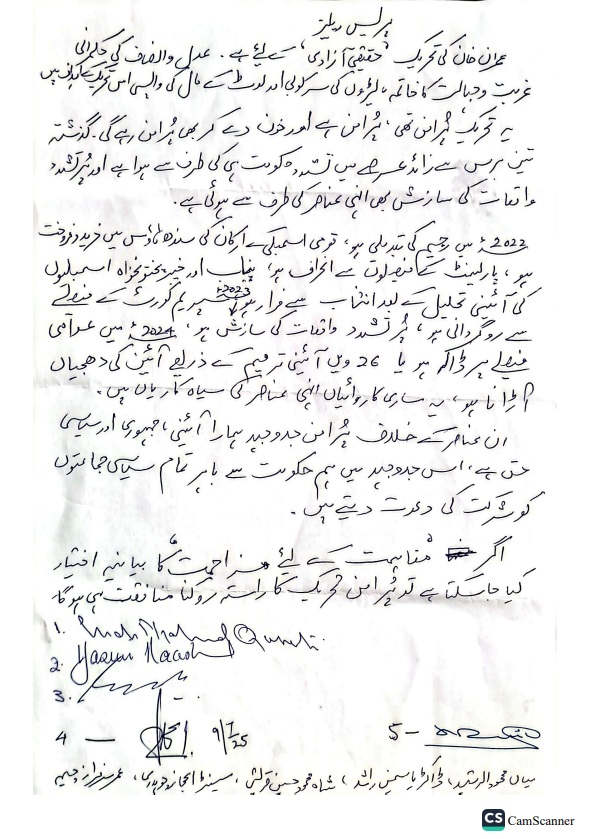 پریس ریلیز
عمران خان کی تحریک "حقیقی آزادی" کے لئے ہے۔ عدل و انصاف کی حکمرانی
غربت و جہالت کا خاتمہ، لٹیروں کی سرکوبی اور لوٹ کے مال کی واپسی اس تحریک کے اہداف ہیں
یہ تحریک پُرامن تھی، پُرامن ہے اور خون دے کر بھی پُرامن رہے گی۔ گذشتہ
تین برس سے زائد عرصے میں تشدد حکومت ہی کی طرف سے ہوا ہے اور پُرتشدد
واقعات کی سازش بھی انہی عناصر کی طرف سے ہوئی ہے۔
2022ء میں رجیم کی تبدیلی ہو، قومی اسمبلی کے ارکان کی سندھ ہاؤس میں خرید و فروخت
ہو، پارلیمنٹ کے فیصلوں سے انحراف ہو، پنجاب اور خیبر پختونخواہ اسمبلیوں
کی آئینی تحلیل کے بعد انتخاب سے فرار ہو، 2023ء سپریم کورٹ کے فیصلے
سے روگردانی ہو، پُرتشدد واقعات کی سازش ہو، 2024ء میں عوامی
فیصلے پر ڈاکہ ہو یا 26 ویں آئینی ترمیم کے ذریعے آئین کی دھجیاں
اُڑانا ہو، یہ ساری کاروائیاں انہی عناصر کی سیاہ کاریاں ہیں۔
ان عناصر کے خلاف پُرامن جدوجہد ہمارا آئینی، جمہوری اور سیاسی
حق ہے، اس جدوجہد میں ہم حکومت سے باہر تمام سیاسی جماعتوں
کو شرکت کی دعوت دیتے ہیں۔
اگر مفاہمت کے لئے "مزاحمت" کا بیانیہ اختیار
کیا جا سکتا ہے تو پُرامن تحریک کا راستہ روکنا منافقت ہی ہوگا۔
1. Shah Mahmood Qureshi
2. Yasmin Rashid
3.
4 — 9/7/25 5 -
میاں محمود الرشید، ڈاکٹر یاسمین راشد، شاہ محمود حسین قریشی، سینیٹر اعجاز چوہدری، عمر سرفراز چیمہ
CS CamScanner